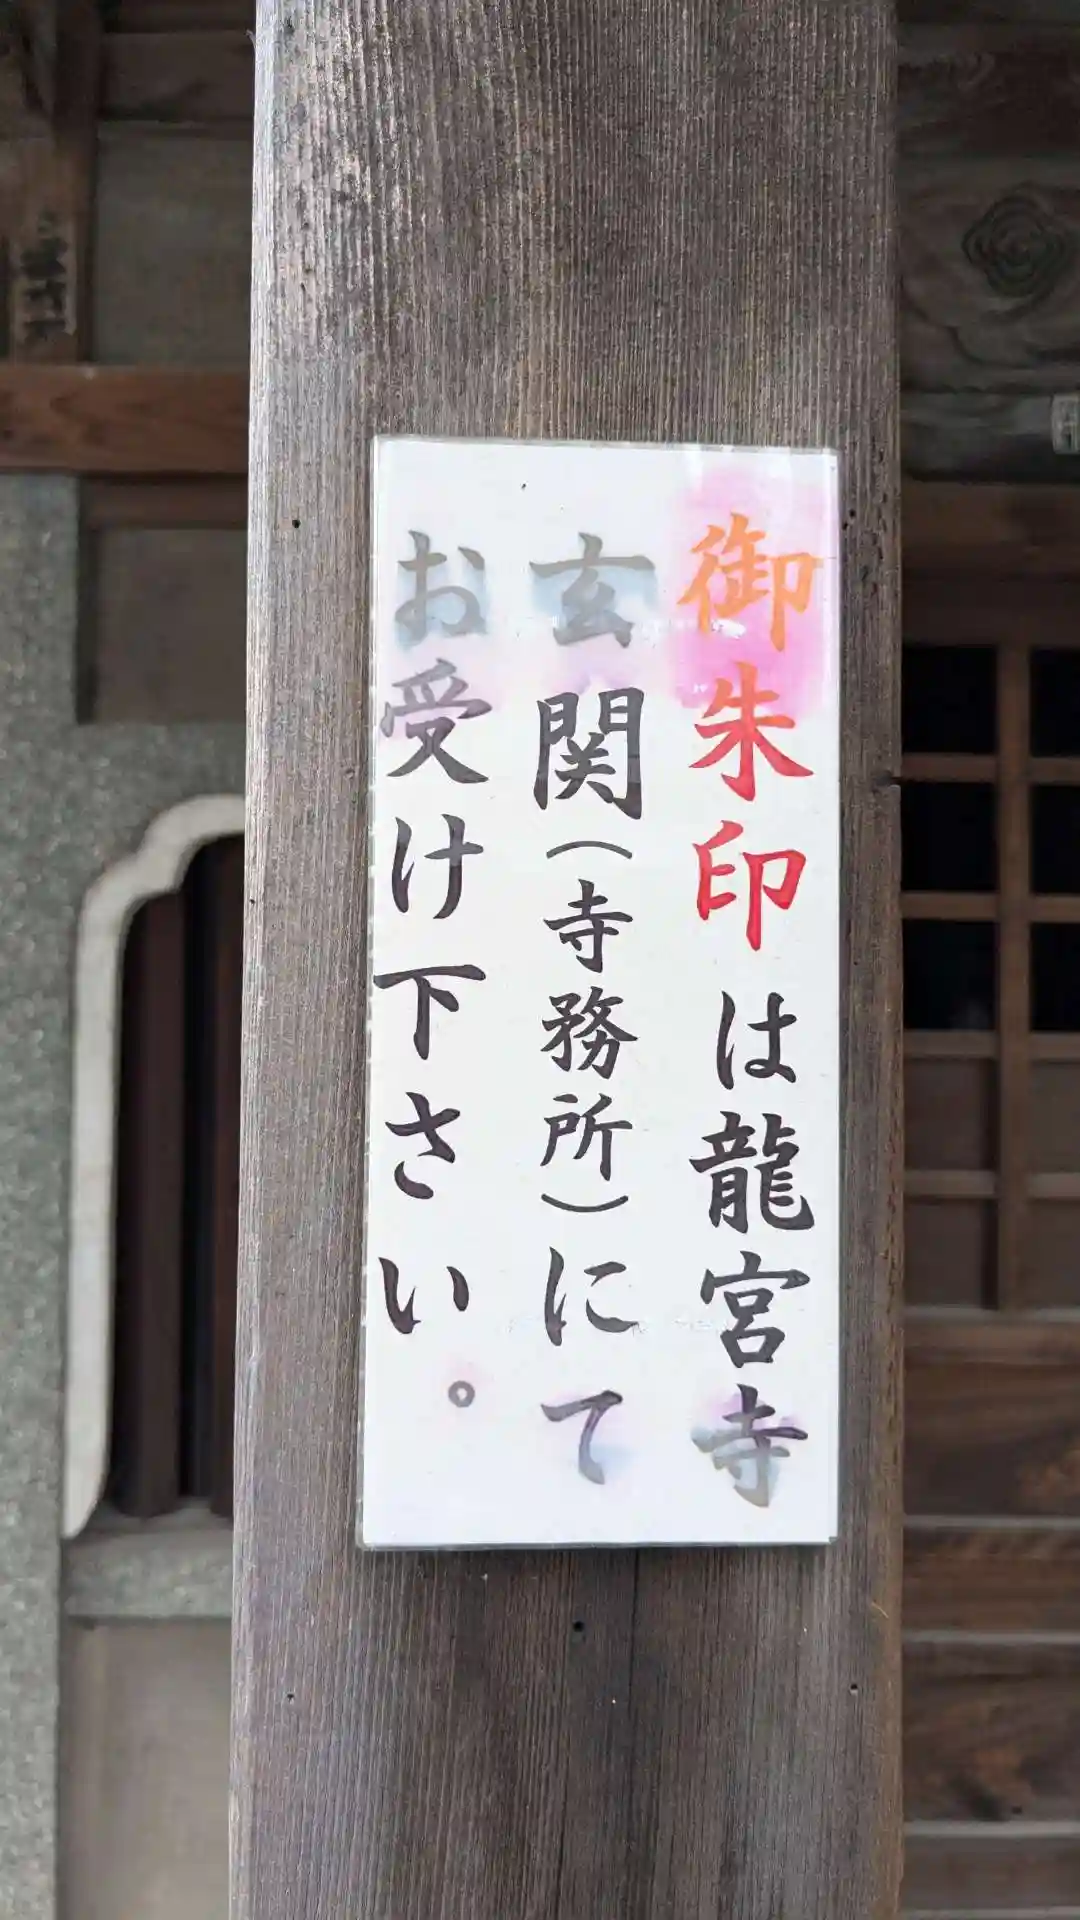 御朱印は龍宮寺
玄関（寺務所）にて
お受け下さい。